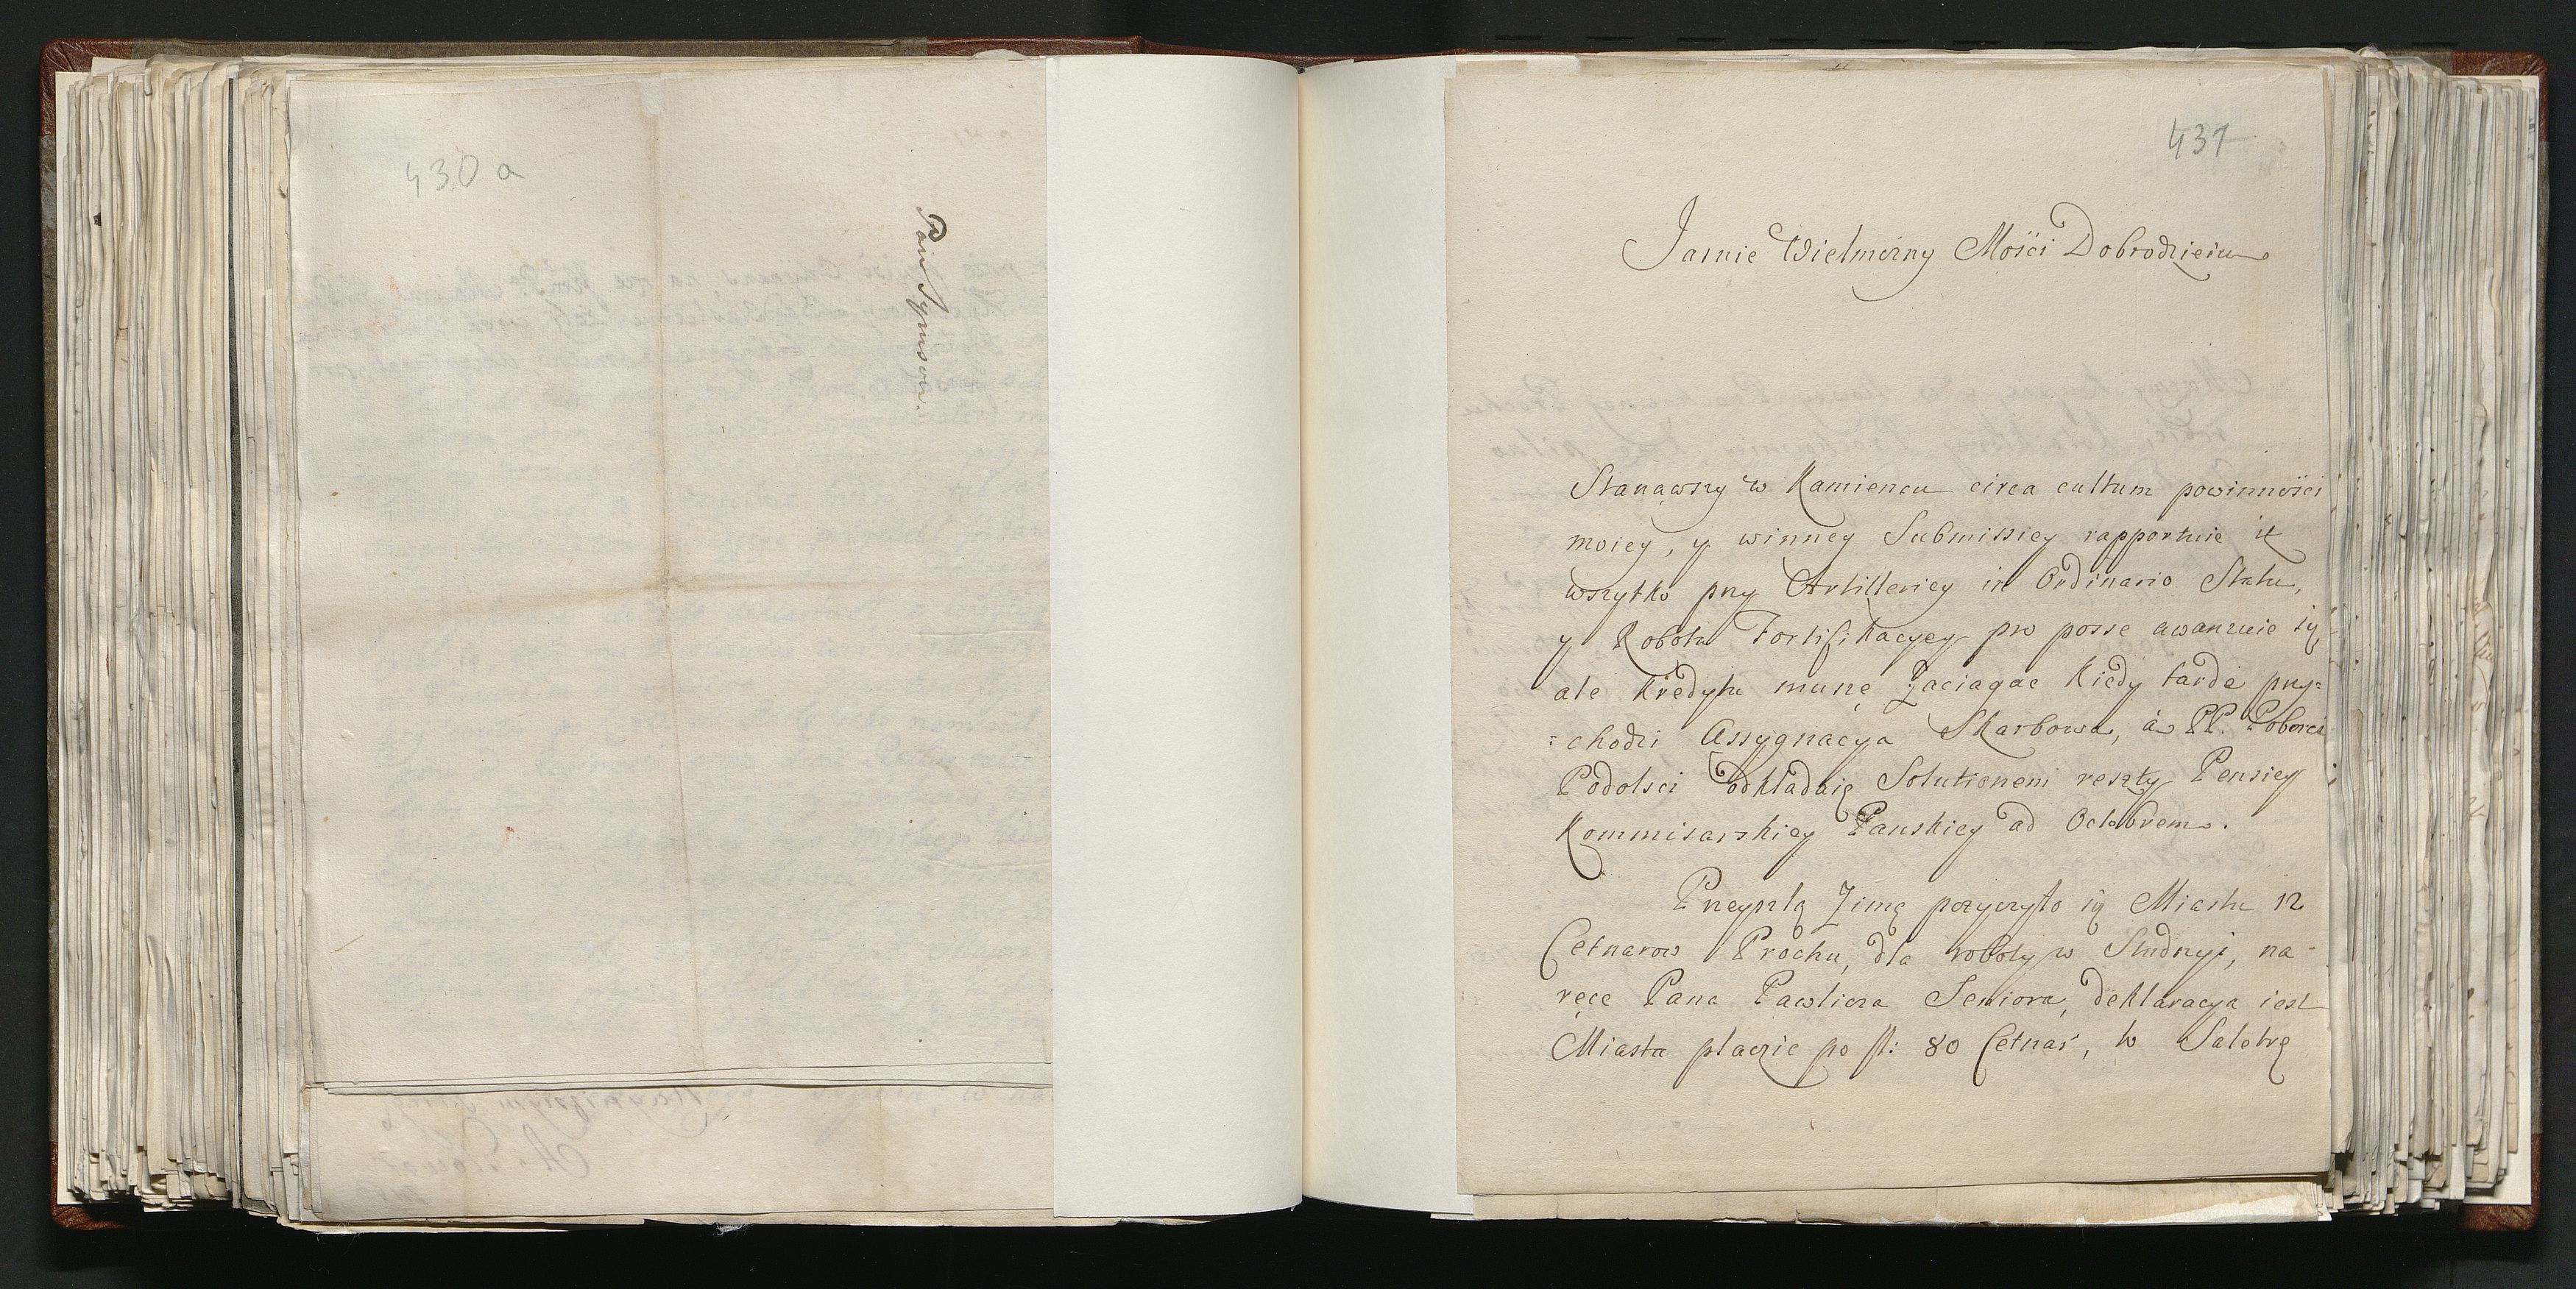 430 a
Pan Symson.
431
Jasnie Wielmożny Mości Dobrodzieiu
Stanąwszy w Kamiencu circa cultum powinności
moiey, y winney Submissiey rapportuię iż
wszytko przy Artilleriey in Ordinario Statu,
y Robota Fortifikacyey pro posse awanzuie się,
ale kredytu muszę zaciągac kiedy tardè przy=
=chodzi Assygnacya Skarbowa, à PP. Poborcy
Podolscy odkładaią Solutionem reszty Pensiey
Kommisarskiey Panskiey ad Octobrem.
Przeyszłą Zimę pożyczyło się Miastu 12
Cetnarow Prochu, dla roboty w Studnyi, na
ręce Pana Pawlicza Seniora, deklaracya iest
Miasta płacic po fl: 80 Cetnar, w Saletrę